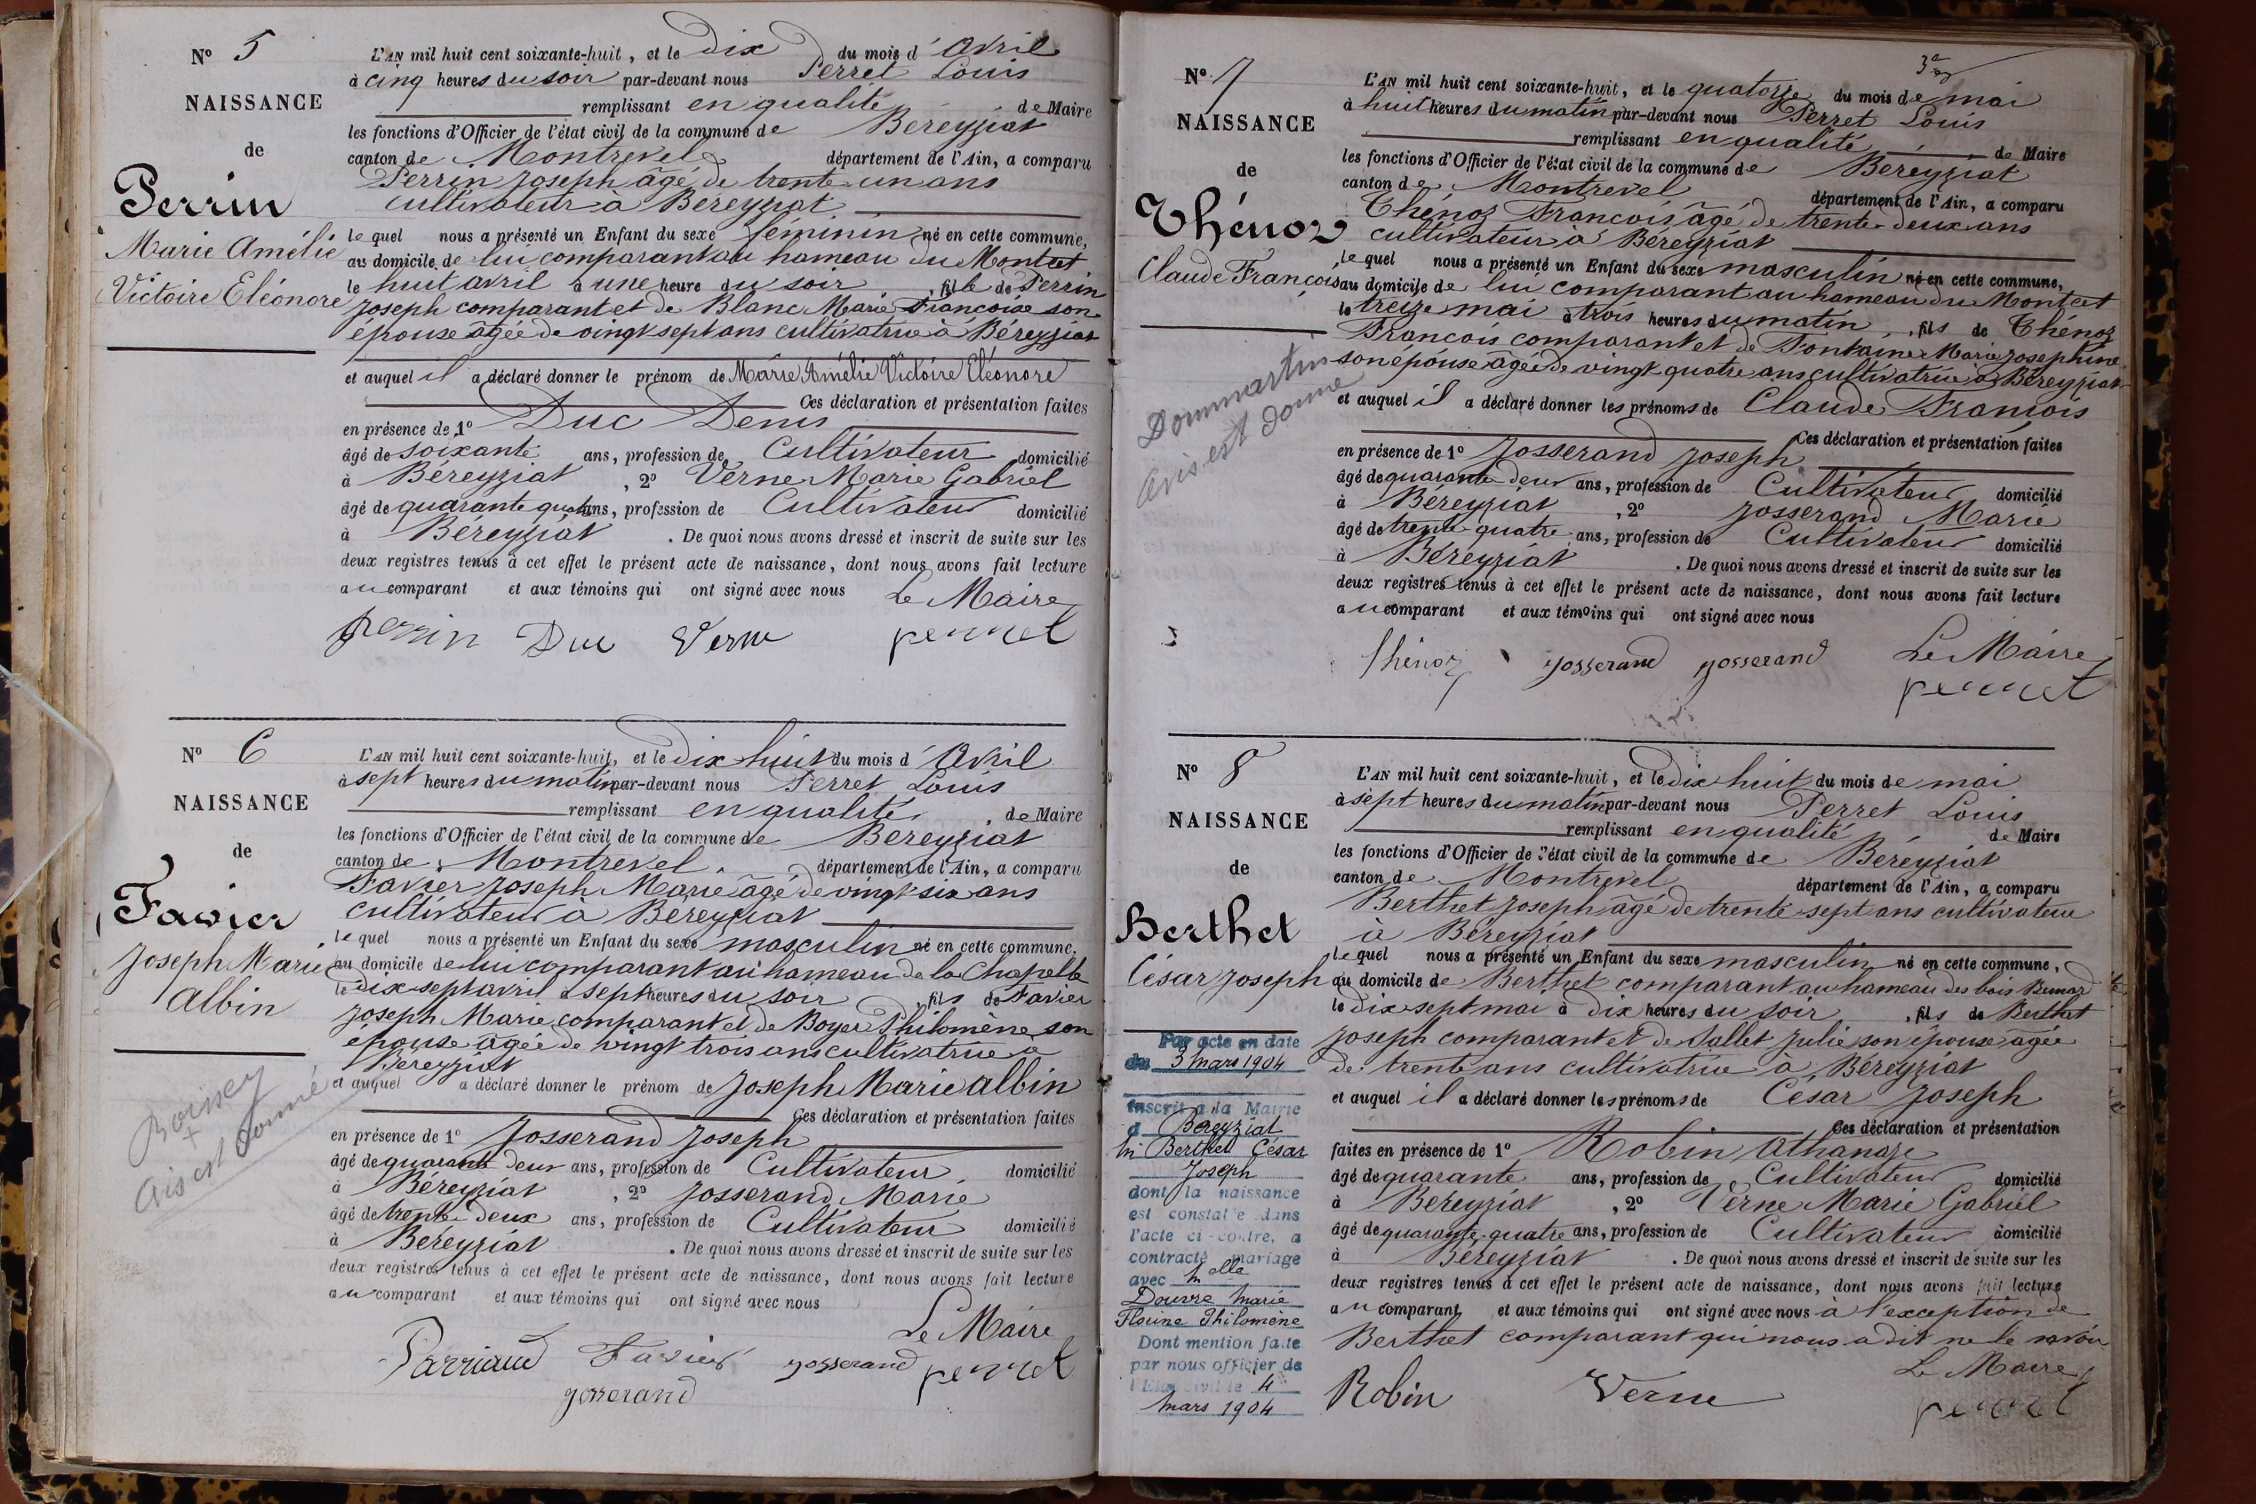 N° 5
NAISSANCE
de
Perrin
Marie Amélie
Victoire Eléonore
L'AN mil huit cent soixante-huit, et le dix du mois d'Avril
à cinq heures du soir par-devant nous Perret Louis
remplissant en qualité de Maire
les fonctions d'Officier de l'état civil de la commune de Béreyziat
canton de Montrevel département de l'Ain, a comparu
Perrin Joseph âgé de trente-un ans
cultivateur à Béreyziat
le quel nous a présenté un Enfant du sexe féminin né en cette commune,
au domicile de lui comparant au hameau du Montet
le huit avril à une heure du soir, fille de Perrin
Joseph comparant et de Blanc Marie Françoise son
épouse âgée de vingt sept ans cultivatrice à Béreyziat
et auquel il a déclaré donner le prénom de Marie Amélie Victoire Eléonore
Ces déclaration et présentation faites
en présence de 1° Duc Denis
âgé de soixante ans, profession de Cultivateur domicilié
à Béreyziat, 2° Verne Marie Gabriel
âgé de quarante quatre ans, profession de Cultivateur domicilié
à Béreyziat. De quoi nous avons dressé et inscrit de suite sur les
deux registres tenus à cet effet le présent acte de naissance, dont nous avons fait lecture
au comparant et aux témoins qui ont signé avec nous Le Maire
perrin Duc Verne perret
N° 6
NAISSANCE
de
Favier
Joseph Marie
Albin
Boissey
+
Avis est donné
L'AN mil huit cent soixante-huit, et le dix huit du mois d'Avril
à sept heures du matin par-devant nous Perret Louis
remplissant en qualité de Maire
les fonctions d'Officier de l'état civil de la commune de Béreyziat
canton de Montrevel département de l'Ain, a comparu
Favier Joseph Marie âgé de vingt six ans
cultivateur à Béreyziat
le quel nous a présenté un Enfant du sexe masculin né en cette commune,
au domicile de lui comparant au hameau de la Chapelle
le dix-sept avril à sept heures du soir, fils de Favier
Joseph Marie comparant et de Boyer Philomène son
épouse âgée de vingt trois ans cultivatrice à
Béreyziat
et auquel a déclaré donner le prénom de Joseph Marie Albin
Ces déclaration et présentation faites
en présence de 1° Josserand Joseph
âgé de quarante deux ans, profession de Cultivateur domicilié
à Béreyziat, 2° Josserand Marie
âgé de trente-deux ans, profession de Cultivateur domicilié
à Béreyziat. De quoi nous avons dressé et inscrit de suite sur les
deux registres tenus à cet effet le présent acte de naissance, dont nous avons fait lecture
au comparant et aux témoins qui ont signé avec nous
Le Maire
Parriaud Favier josserand perret
josserand
N° 7
NAISSANCE
de
Thénoz
Claude François
Dommartin
Avis est donné
L'AN mil huit cent soixante-huit, et le quatorze du mois de mai
à huit heures du matin par-devant nous Perret Louis
remplissant en qualité de Maire
les fonctions d'Officier de l'état civil de la commune de Béreyziat
canton de Montrevel département de l'Ain, a comparu
Thénoz François âgé de trente-deux ans
cultivateur à Béreyziat
le quel nous a présenté un Enfant du sexe masculin né en cette commune,
au domicile de lui comparant au hameau du Montet
le treize mai à trois heures du matin, fils de Thénoz
François comparant et de Fontaine Marie Josephine
son épouse âgée de vingt quatre ans cultivatrice à Béreyziat
et auquel il a déclaré donner les prénoms de Claude François
Ces déclaration et présentation faites
en présence de 1° Josserand Joseph
âgé de quarante deux ans, profession de Cultivateur domicilié
à Béreyziat, 2° Josserand Marie
âgé de trente-quatre ans, profession de Cultivateur domicilié
à Béreyziat. De quoi nous avons dressé et inscrit de suite sur les
deux registres tenus à cet effet le présent acte de naissance, dont nous avons fait lecture
au comparant et aux témoins qui ont signé avec nous
Thénoz josserand josserand Le Maire
perret
N° 8
NAISSANCE
de
Berthet
César Joseph
Par acte en date
du 3 mars 1904
inscrit à la Mairie
d Béreyziat
M Berthet César
Joseph
dont la naissance
est constatée dans
l'acte ci-contre, a
contracté mariage
avec Melle
Douvre Marie
Florine Philomène
Dont mention faite
par nous officier de
l'Etat civil le 4
mars 1904
L'AN mil huit cent soixante-huit, et le dix huit du mois de mai
à sept heures du matin par-devant nous Perret Louis
remplissant en qualité de Maire
les fonctions d'Officier de l'état civil de la commune de Béreyziat
canton de Montrevel département de l'Ain, a comparu
Berthet Joseph âgé de trente-sept ans cultivateur
à Béreyziat
le quel nous a présenté un Enfant du sexe masculin né en cette commune,
au domicile de Berthet comparant au hameau des bois
le dix sept mai à dix heures du soir, fils de Berthet
Joseph comparant et de Sallet Julie son épouse âgée
de trente ans cultivatrice à Béreyziat
et auquel il a déclaré donner les prénoms de César Joseph
Ces déclaration et présentation
faites en présence de 1° Robin Athanaze
âgé de quarante ans, profession de Cultivateur domicilié
à Béreyziat, 2° Verne Marie Gabriel
âgé de quarante-quatre ans, profession de Cultivateur domicilié
à Béreyziat. De quoi nous avons dressé et inscrit de suite sur les
deux registres tenus à cet effet le présent acte de naissance, dont nous avons fait lecture
au comparant et aux témoins qui ont signé avec nous à l'exception de
Berthet comparant qui nous a dit ne le savoir
Le Maire
Robin Verne perret